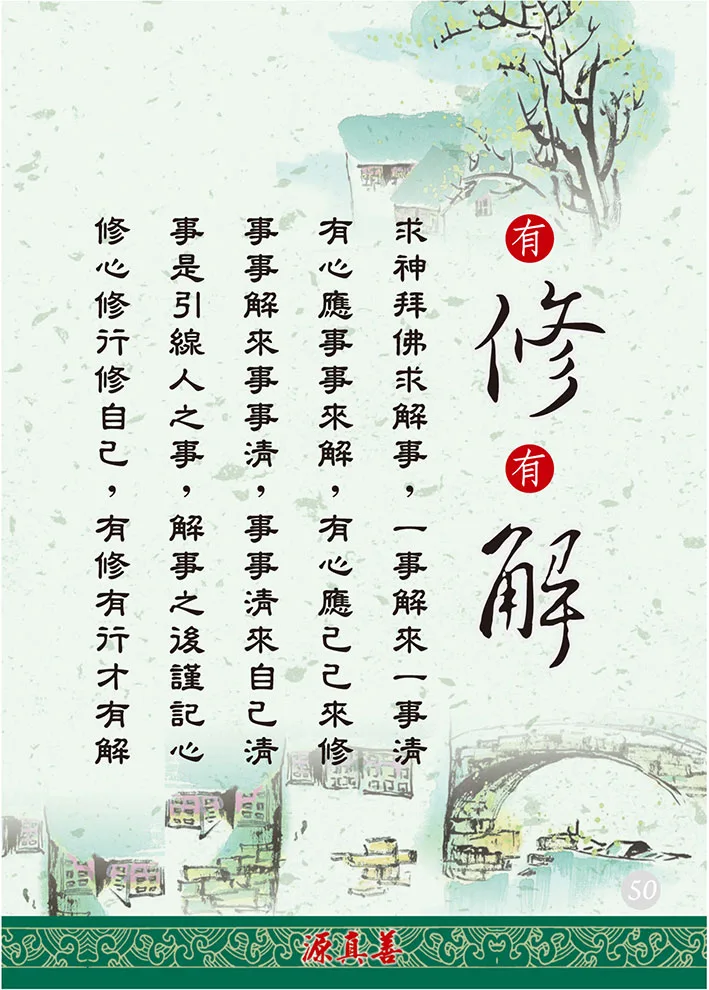 有修有解
求神拜佛求解事，一事解來一事清
有心應事事來解，有心應己己來修
事事解來事事清，事事清來自己清
事是引線人之事，解事之後謹記心
修心修行修自己，有修有行才有解
50
源真善